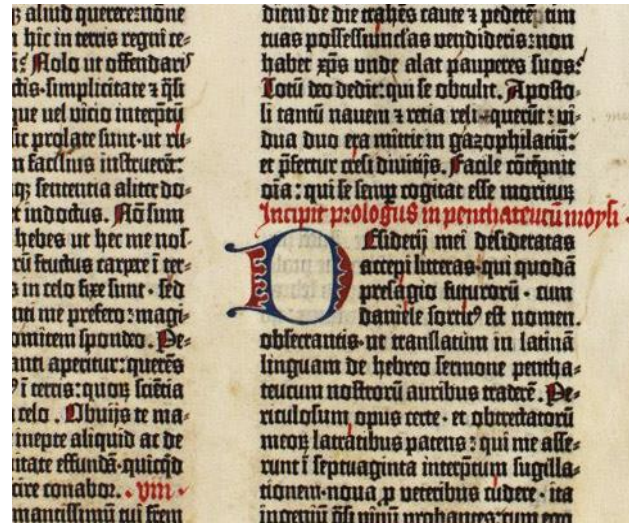 aliud querere: nõne
n hic in terris regni ce-
Nolo ut offendaris
simplicitate ⁊ qͥsi
que uel vicio interpretũ
sic prolate sunt · ut ru-
m facilius instruerēt:
sententia aliter do-
et indoctus. Nõ sum
hebes ut hec me nos-
rũ fructus carpere ĩ ter-
s in celo fixe sunt · sed
me prefero: magi-
omitem spondeo. Pe-
anti aperitur: querēs
ĩ terris: quoꝝ sciētia
celo. Obuijs te ma-
inepte aliquid ac de
itate effundã · quicqͥd
cire conabor. · VIII ·
mantissimũ tui frem
diem de die trahēs caute ⁊ pedetētim
tuas possessiunclas vendideris: non
habet xp̃s unde alat pauperes suos:
Totũ deo dedit: qui se obtulit. Aposto-
li tantũ nauem ⁊ retia reliquerũt: vi-
dua duo era mittit in gazophilaciũ:
et p̃fertur cresi diuitijs. Facile cõtēpnit
oĩa: qui se semp cogitat esse morituꝝ
Incipit prologus in penthateucũ moysi ·
Desiderij mei desideratas
accepi litteras · qui quodã
presagio futurorũ · cum
daniele sortitꝰ est nomen.
obsecrantis · ut translatum in latinã
linguam de hebreo sermone pentha-
teucum nostrorũ auribus traderē. Pe-
riculosum opus certe · et obtrectatorũ
meoꝝ latratibus patens: qui me asse-
runt ĩ septuaginta interp̃tum sugilla-
tionem · noua ꝓ veteribus cudere · ita
ingeniũ qͥsi vinũ probantes: cum ego